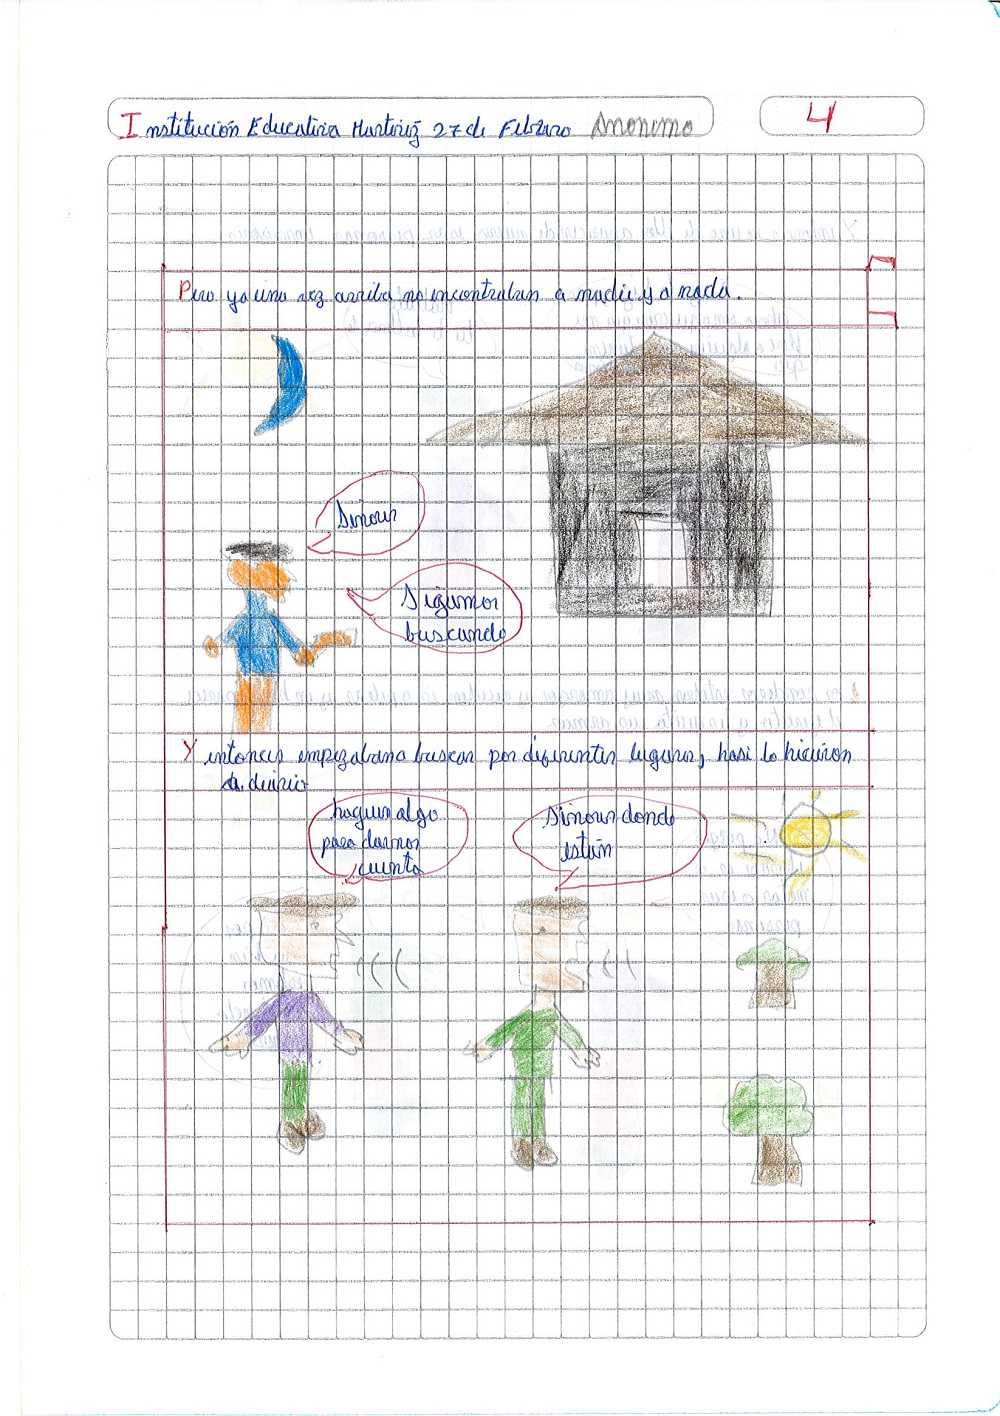 Institución Educativa Martirez 27 de Febrero Anonimo
4
Pero ya una vez arriba no encontraban a nadie y a nada.
Sinour
Sigamos
buscando
Y entonces empezaban a buscar por diferentes lugares, hasi lo hicieron
a diario
hagan algo
para darnos
cuenta
Sinour donde
están